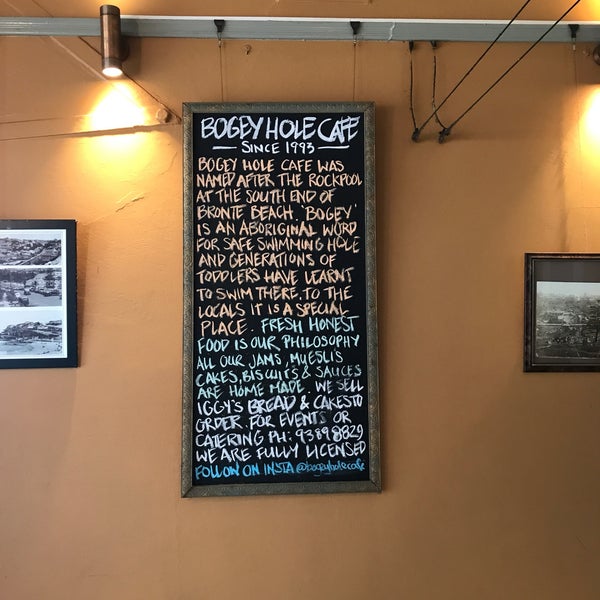 BOGEY HOLE CAFE
— SINCE 1993 —
BOGEY HOLE CAFE WAS
NAMED AFTER THE ROCKPOOL
AT THE SOUTH END OF
BRONTE BEACH. 'BOGEY'
IS AN ABORIGINAL WORD
FOR SAFE SWIMMING HOLE
AND GENERATIONS OF
TODDLERS HAVE LEARNT
TO SWIM THERE. TO THE
LOCALS IT IS A SPECIAL
PLACE. FRESH HONEST
FOOD IS OUR PHILOSOPHY
ALL OUR JAMS, MUESLIS
CAKES, BISCUITS & SAUCES
ARE HOME MADE. WE SELL
IGGY'S BREAD & CAKES TO
ORDER. FOR EVENTS OR
CATERING PH: 93898829
WE ARE FULLY LICENSED
FOLLOW ON INSTA @bogeyholecafe